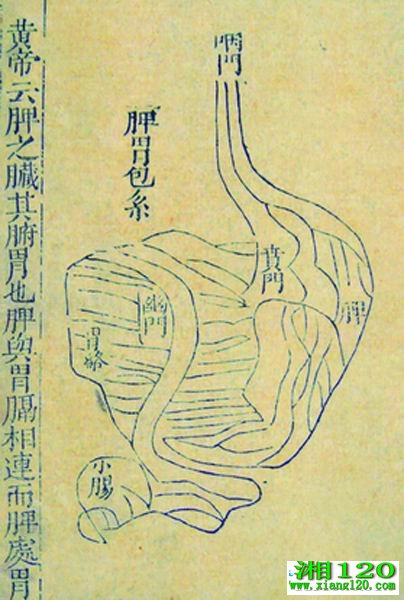 咽門
脾胃包系
賁門
脾
幽門
胃絡
小腸
黄帝云脾之臟其腑胃也脾與胃膈相連而脾處胃
湘120
www.xiang120.com